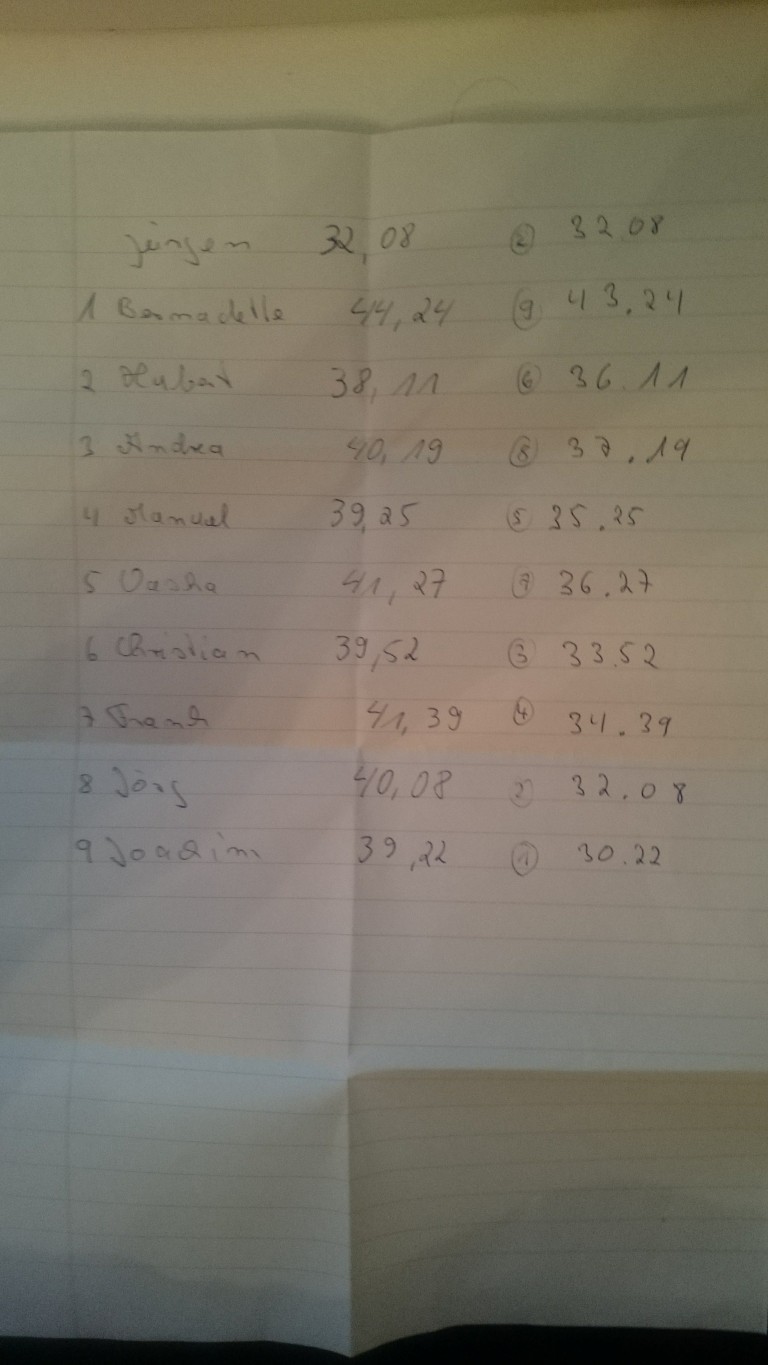 Jürgen 32,08 ② 32.08
1 Bernadette 44,24 ⑨ 43.24
2 Hubert 38,11 ⑥ 36.11
3 Andrea 40,19 ⑧ 37.19
4 Manuel 39,25 ⑤ 35.25
5 41,27 ⑦ 36.27
6 Christian 39,52 ③ 33.52
7 Frank 41,39 ④ 34.39
8 Jörg 40,08 ② 32.08
9 Joachim 39,22 ① 30.22